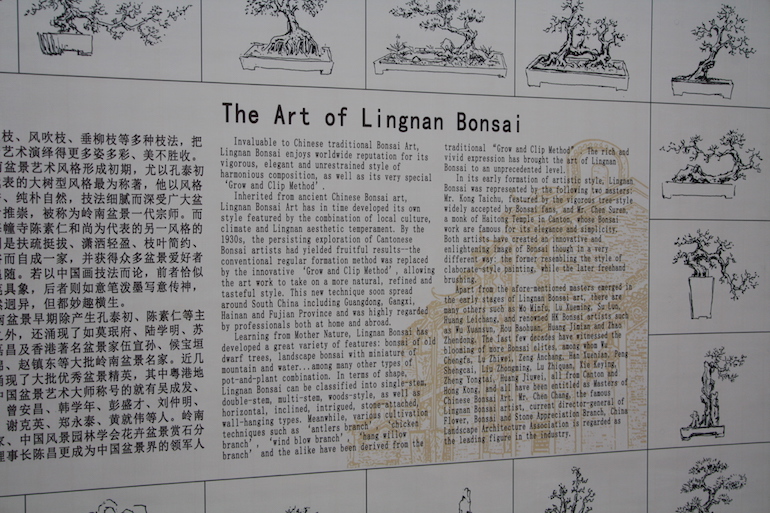 枝、风吹枝、垂柳枝等多种枝法，把
艺术演绎得更多姿多彩、美不胜收。
盆景艺术风格形成初期，尤以孔泰初
代表的大树型风格最为称著，他以风格
、纯朴自然，技法细腻而深受广大盆
推崇，被称为岭南盆景一代宗师。而
幢寺陈素仁和尚为代表的另一风格的
是扶疏挺拔、潇洒轻盈、枝叶简约、
而自成一家，并获得众多盆景爱好者
随。若以中国画技法而论，前者恰似
具象，后者则如意笔泼墨写意传神，
迥异，但都妙趣横生。
南盆景早期除产生孔泰初、陈素仁等主
外，还涌现了如莫珉府、陆学明、苏
昌及香港著名盆景家伍宜孙、侯宝垣
、赵镇东等大批岭南盆景名家。近几
涌现了大批优秀盆景精英，其中粤港地
中国盆景艺术大师称号的就有吴成发、
、曾安昌、韩学年、彭盛才、刘仲明、
、谢克英、郑永泰、黄就伟等人。岭南
家、中国风景园林学会花卉盆景赏石分
理事长陈昌更成为中国盆景界的领军人
The Art of Lingnan Bonsai
Invaluable to Chinese traditional Bonsai Art,
Lingnan Bonsai enjoys worldwide reputation for its
vigorous, elegant and unrestrained style of
harmonious composition, as well as its very special
‘Grow and Clip Method’.
Inherited from ancient Chinese Bonsai Art,
Lingnan Bonsai Art has in time developed its own
style featured by the combination of local culture,
climate and Lingnan aesthetic temperament. By the
1930s, the persisting exploration of Cantonese
Bonsai artists had yielded fruitful results—the
conventional regular formation method was replaced
by the innovative ‘Grow and Clip Method’, allowing
the art work to take on a more natural, refined and
tasteful style. This new technique soon spread
around South China including Guangdong, Gangxi,
Hainan and Fujian Province and was highly regarded
by professionals both at home and abroad.
Learning from Mother Nature, Lingnan Bonsai has
developed a great variety of features: bonsai of old
dwarf trees, landscape bonsai with miniature of
mountain and water...among many other types of
pot-and-plant combination. In terms of shape,
Lingnan Bonsai can be classified into single-stem,
double-stem, multi-stem, woods-style, as well as
horizontal, inclined, intrigued, stone-attached,
wall-hanging types. Meanwhile, various cultivation
techniques such as ‘antlers branch’, ‘chicken
branch’, ‘wind blow branch’, ‘hang willow
branch’ and the alike have been derived from the
traditional “Grow and Clip Method”. The rich and
vivid expression has brought the art of Lingnan
Bonsai to an unprecedented level.
In its early formation of artistic style, Lingnan
Bonsai was represented by the following two masters:
Mr. Kong Taichu, featured by the vigorous tree-style
widely accepted by Bonsai fans, and Mr. Chen Suren,
a monk of Haitong Temple in Canton, whose Bonsai
work are famous for its elegance and simplicity.
Both artists have created an innovative and
enlightening image of Bonsai though in a very
different way: the former resembling the style of
claborate-style painting, while the later freehand
brushing.
Apart from the afore-mentioned masters emerged in
the early stages of Lingnan Bonsai art, there are
many others such as Mo Minfu, Lu Xueming, Su Lun,
Huang Leichang, and renowned HK Bonsai artists such
as Wu Yuansun, Hou Baohuan, Huang Jimian and Zhao
Zhendong. The last few decades have witnessed the
blooming of more Bonsai elites, among whom Wu
Chengfa, Lu Zhiwei, Zeng Anchang, Han Xuenian, Peng
Shengcai, Liu Zhongming, Lu Zhiquan, Xie Keying,
Zheng Yongtai, Huang Jiuwei, all from Canton and
Hong Kong, and all have been entitled as Masters of
Chinese Bonsai Art. Mr. Chen Chang, the famous
Lingnan Bonsai artist, current director-general of
Flower, Bonsai and Stone Appreciation Branch, China
Landscape Architecture Association is regarded as
the leading figure in the industry.